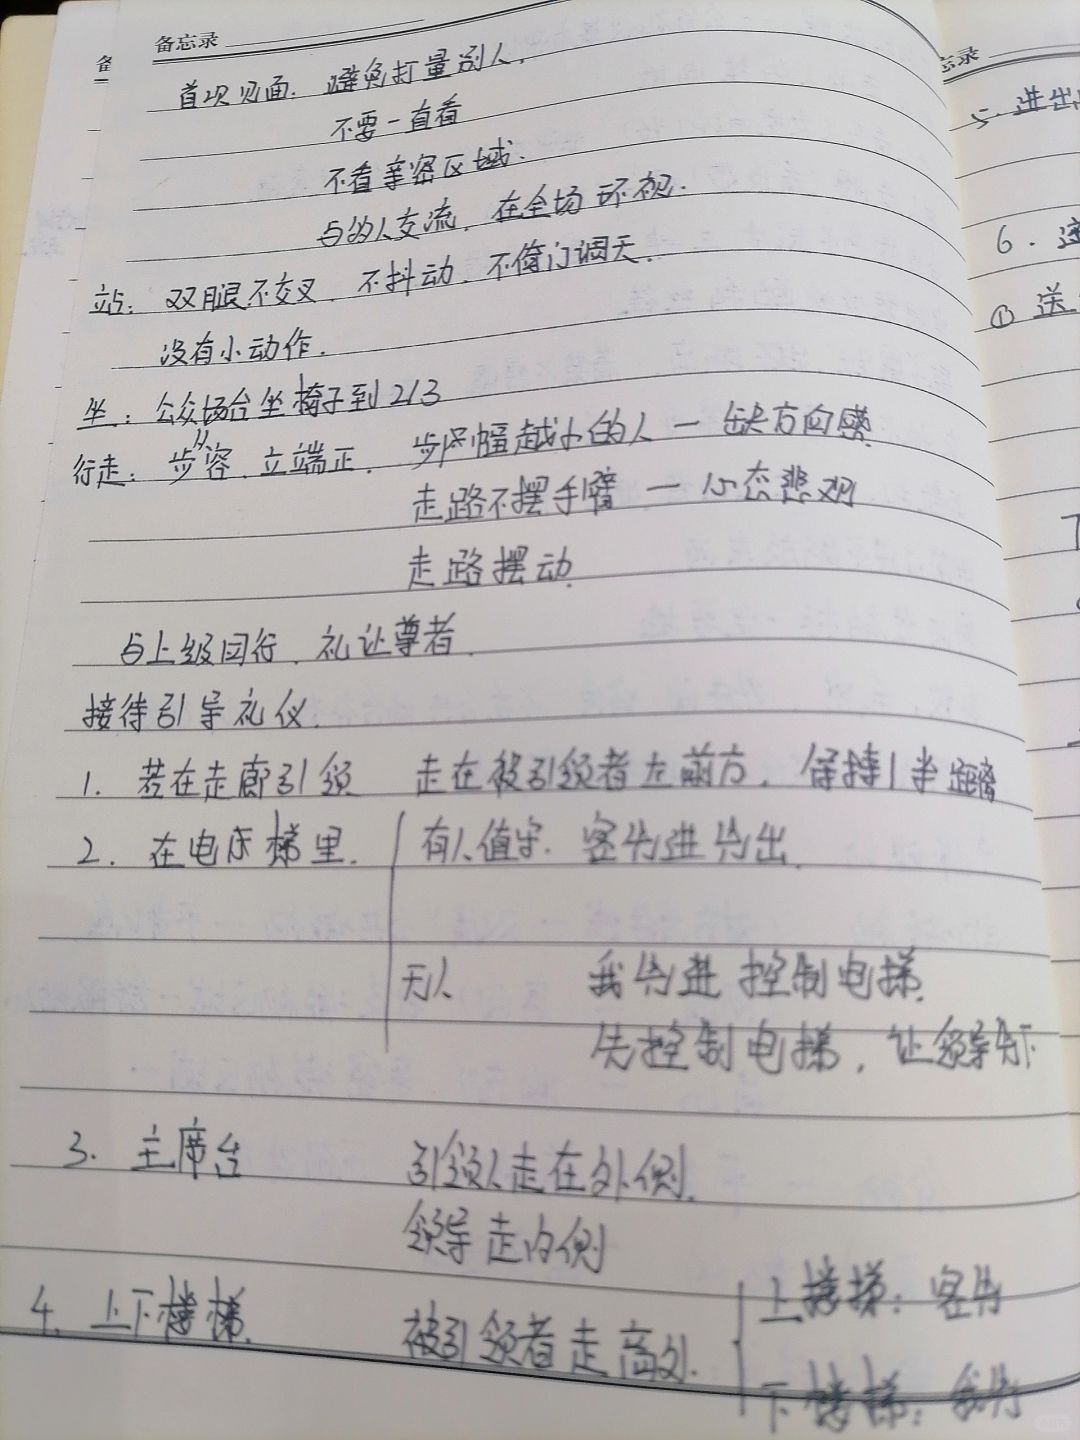 备忘录
首次见面: 避免打量别人.
不要一直看
不看亲密区域.
与的人交流, 在全场环视.
站: 双腿不交叉, 不抖动, 不倚门调天.
没有小动作.
坐: 公众场合坐椅子到2/3
行走: 步容, 立端正. 步幅越小的人 — 缺方向感
走路不摆手臂 — 心态悲观
走路摆动
与上级同行, 礼让尊者.
接待引导礼仪.
1. 若在走廊引领 走在被引领者左前方, 保持1半距离
2. 在电梯里. 有人值守. 客先进先出.
无人 我先进 控制电梯.
先控制电梯, 让领导先下
3. 主席台 引领人走在外侧.
领导走内侧
4. 上下楼梯. 被引领者走高处.
上楼梯: 客先
下楼梯: 我先
备
忘录
5. 进出
6.
① 送